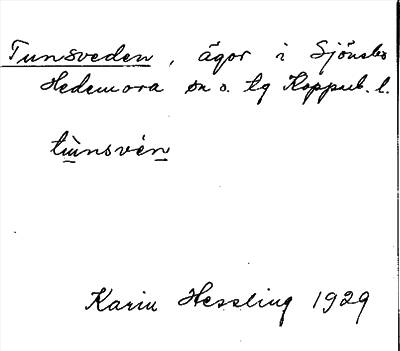 Tunsveden, ägor i Sjönsbo
Hedemora sn o. tg Kopparb. l.
tùnsvén
Karin Hessling 1929